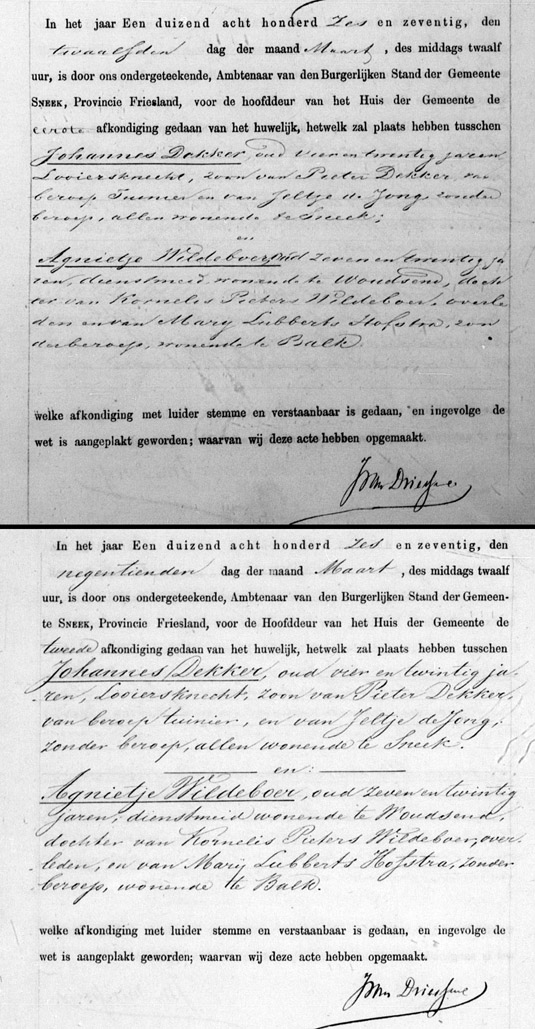 In het jaar Een duizend acht honderd Zes en zeventig, den
twaalfden dag der maand Maart, des middags twaalf
uur, is door ons ondergeteekende, Ambtenaar van den Burgerlijken Stand der Gemeente
SNEEK, Provincie Friesland, voor de hoofddeur van het Huis der Gemeente de
eerste afkondiging gedaan van het huwelijk, hetwelk zal plaats hebben tusschen
Johannes Dekker, oud vier en twintig jaren
Looiersknecht, zoon van Pieter Dekker, van
beroep Tuinier en van Jeltje de Jong, zonder
beroep, allen wonende te Sneek;
en
Agnietje Wildeboer, oud zeven en twintig ja
ren, dienstmeid, wonende te Woudsend, doch
ter van Kornelis Pieters Wildeboer, overle
den en van Marij Lubberts Hofstra, zon
der beroep, wonende te Balk.
welke afkondiging met luider stemme en verstaanbaar is gedaan, en ingevolge de
wet is aangeplakt geworden; waarvan wij deze acte hebben opgemaakt.
In het jaar Een duizend acht honderd Zes en zeventig, den
negentienden dag der maand Maart, des middags twaalf
uur, is door ons ondergeteekende, Ambtenaar van den Burgerlijken Stand der Gemeen-
te SNEEK, Provincie Friesland, voor de Hoofddeur van het Huis der Gemeente de
tweede afkondiging gedaan van het huwelijk, hetwelk zal plaats hebben tusschen
Johannes Dekker, oud vier en twintig ja-
ren, Looiersknecht, zoon van Pieter Dekker,
van beroep tuinier, en van Jeltje de Jong,
zonder beroep, allen wonende te Sneek.
en:
Agnietje Wildeboer, oud zeven en twintig
jaren, dienstmeid wonende te Woudsend,
dochter van Kornelis Pieters Wildeboer, over
leden, en van Marij Lubberts Hofstra, zonder
beroep, wonende te Balk.
welke afkondiging met luider stemme en verstaanbaar is gedaan, en ingevolge de
wet is aangeplakt geworden; waarvan wij deze acte hebben opgemaakt.